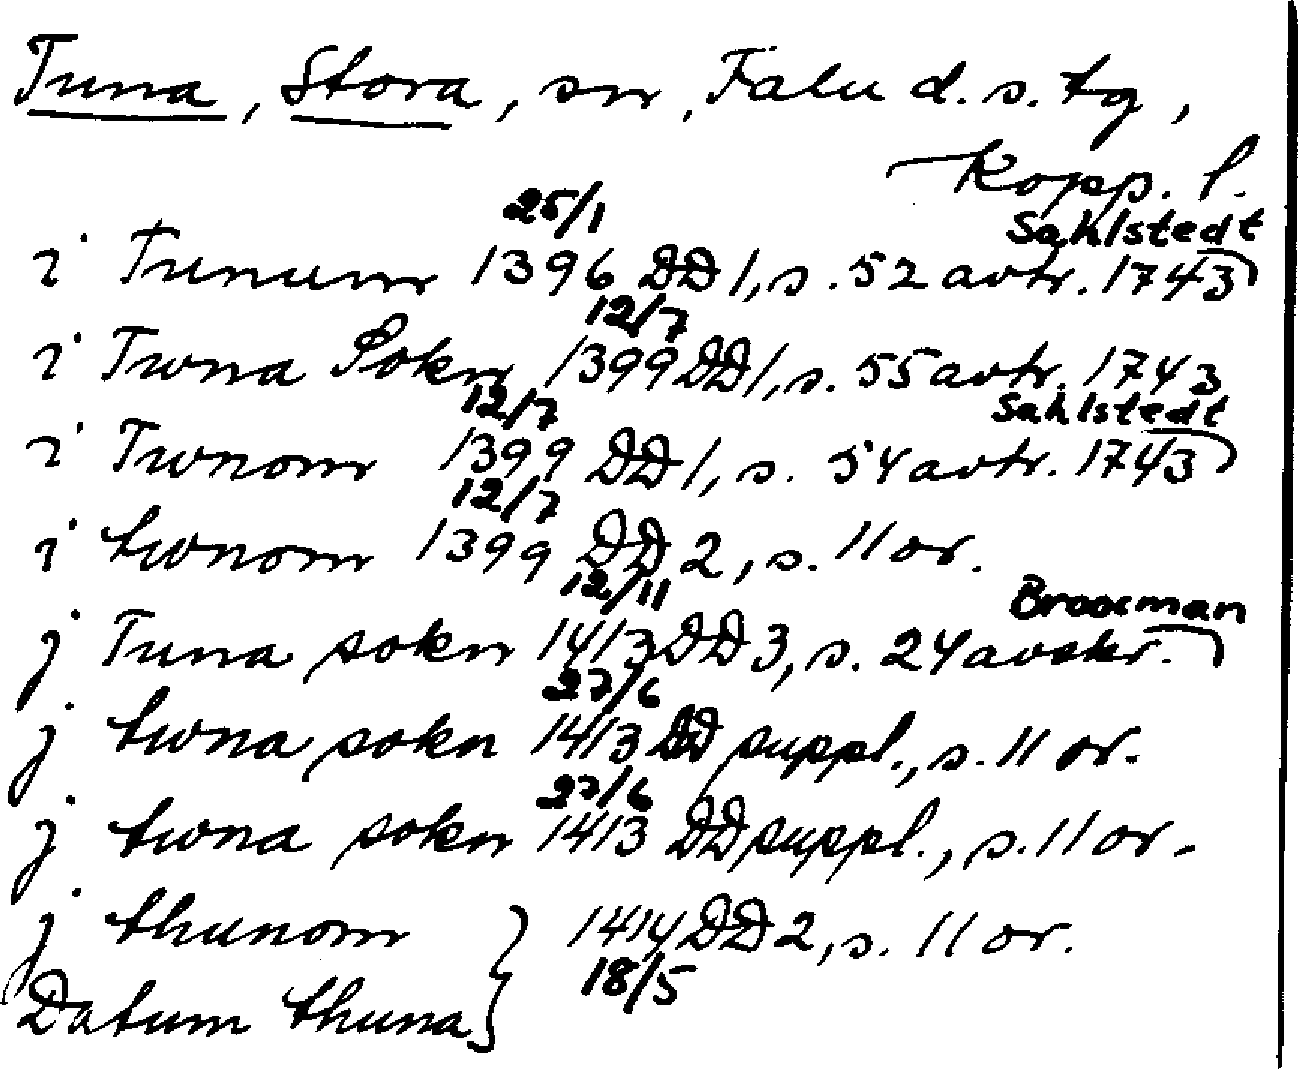 Tuna, Stora, sn, Falu d. s. tg,
Kopp. l.
25/1 Sahlstedt
i Tunum 1396 DD 1, s. 52 avtr. 1743
12/7
i Twna Sokn 1399 DD 1, s. 55 avtr. 1743
12/7 Sahlstedt
i Twnom 1399 DD 1, s. 54 avtr. 1743
12/7
i twnom 1399 DD 2, s. 11 or.
12/11 Broocman
j Tuna sokn 1413 DD 3, s. 24 avskr.
27/6
j twna sokn 1413 DD suppl., s. 11 or.
27/6
j twna sokn 1413 DD suppl., s. 11 or.
j thunom } 1414 DD 2, s. 11 or.
18/5
Datum thuna